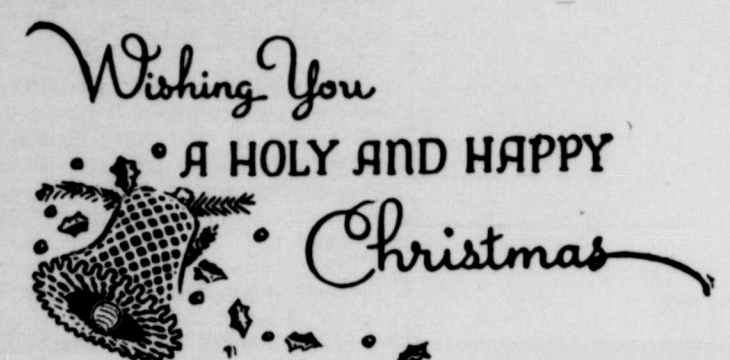 Wishing You
A HOLY AND HAPPY
Christmas